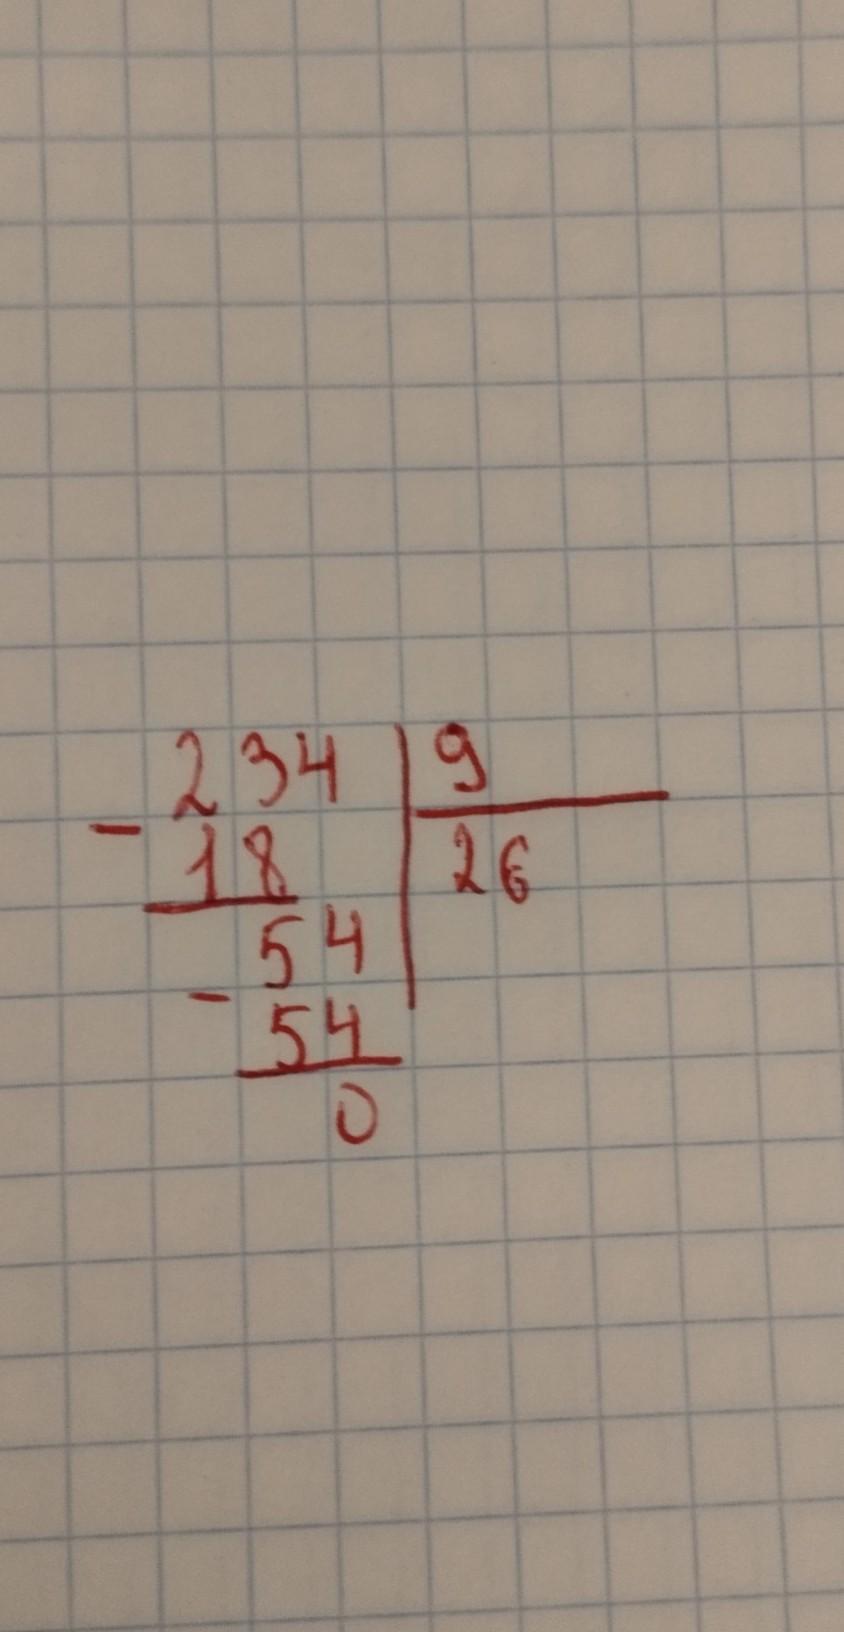 234 | 9
- 18 | 26
54
- 54
0